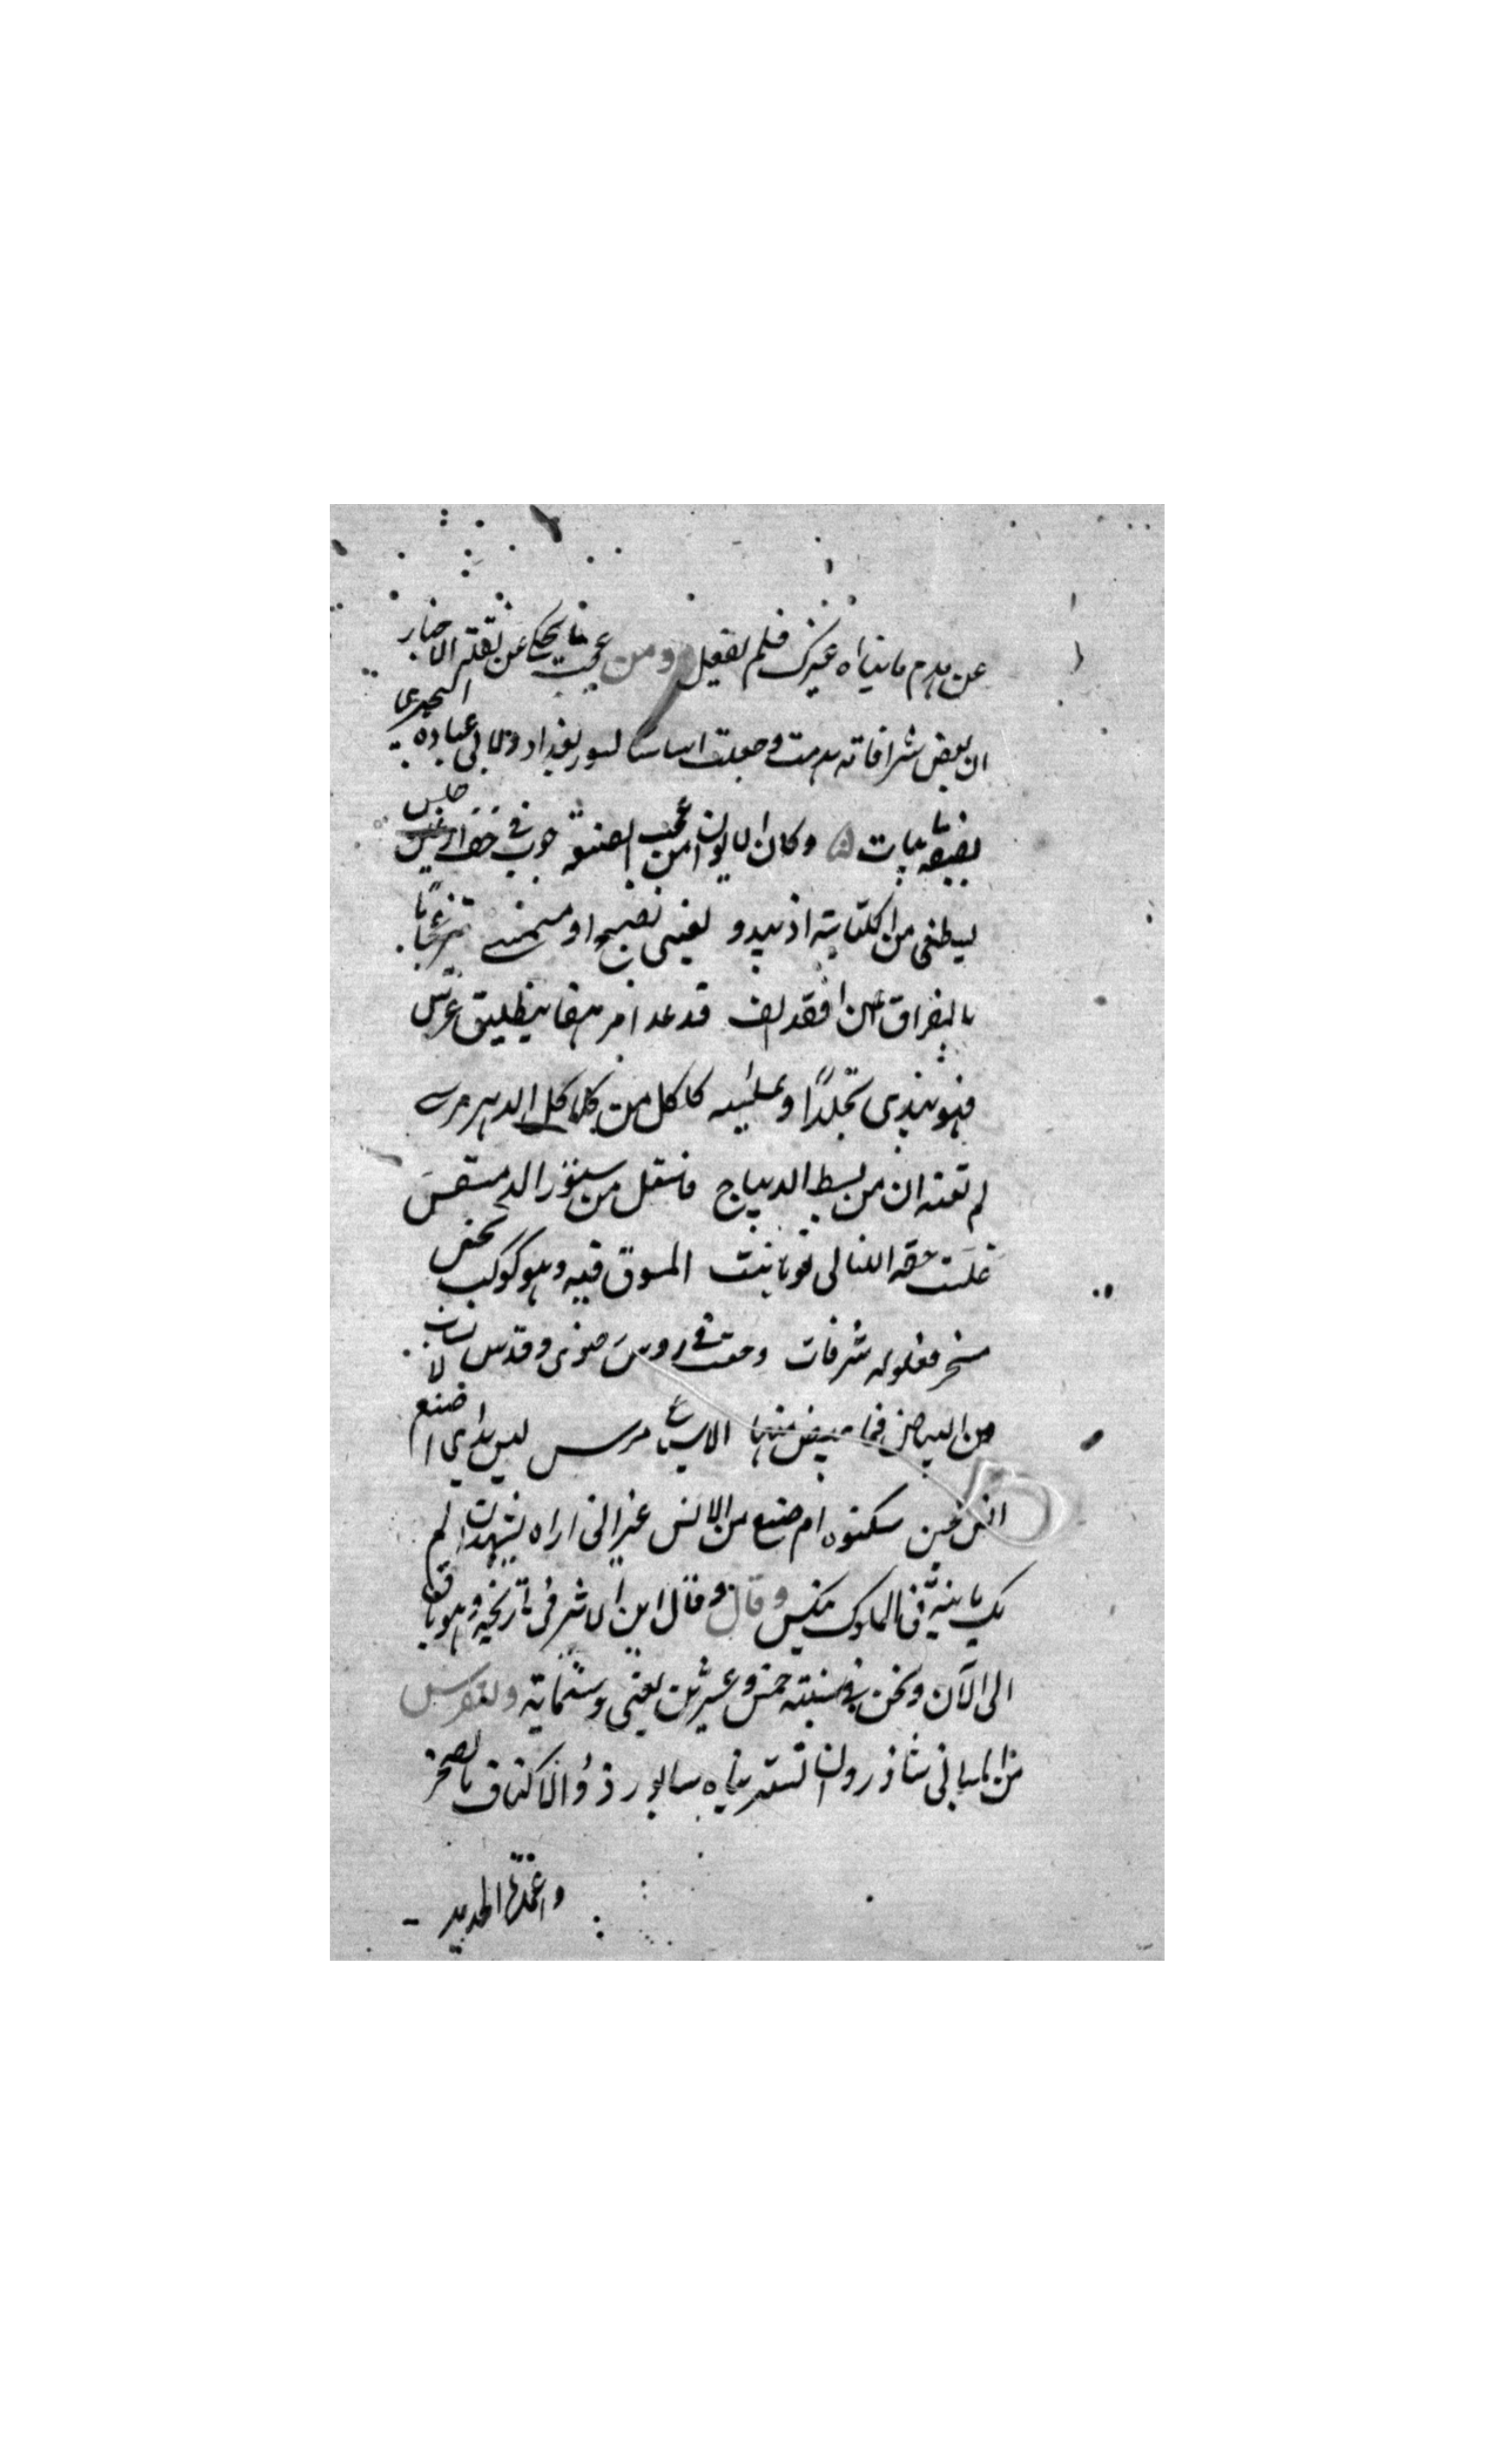 عن هدم ما بناه غيرك فلم تفعل ومن عجيب ما يحكى عن نقلة الاخبار
ان بعض شرافاته هدمت وجعلت اساسا لسور بغداد وقال ابى عبادة البحترى
يصفه بابيات وكان الايوان من عجب الصنعة جوب فى جنب ارعن جلس
يتظنى من الكآبة اذ يبدو لعينى مصبح او ممسى مزعجا
بالفراق عن انس الف قد غدا او مرهقا بتطليق عرس
فهو يبدى تجلدا وعليه كلكل من كلاكل الدهر مرسى
لم تعبه ان من بسط الديباج فاستل من ستور الدمقس
المسوق فيه وهو كوكب نحس
مشمخر تعلو له شرفات رفعت فى روس رضوى وقدس لابسات
من البياض فما تبصر منها الا مرس ليس يدرى اصنع
انس لجن سكنوه ام صنع من الانس غير انى اراه يشهد ان لم
يك بانيه فى الملوك بنكس وقال وقال ابن الاثير فى تاريخه وهو باق
الى الآن ونحن فى سنة خمس وعشرين يعنى وستماية وللفرس
من المبانى شاذروان تستر بناه سابور ذو الاكتاف بالصخر
واعمدة الحديد